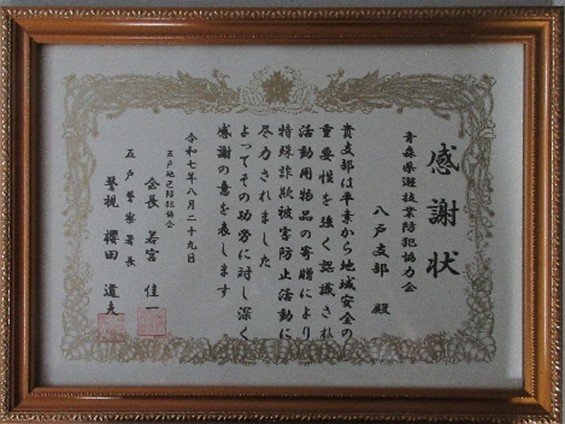 感謝状
青森県遊技業防犯協力会
八戸支部 殿
貴支部は平素から地域安全の
重要性を強く認識され
活動用物品の寄贈により
特殊詐欺被害防止活動に
尽力されました
よってその功労に対し深く
感謝の意を表します
令和七年八月二十九日
五戸地区防犯協会
会長 若宮佳一
五戸警察署長
警視 櫻田道夫